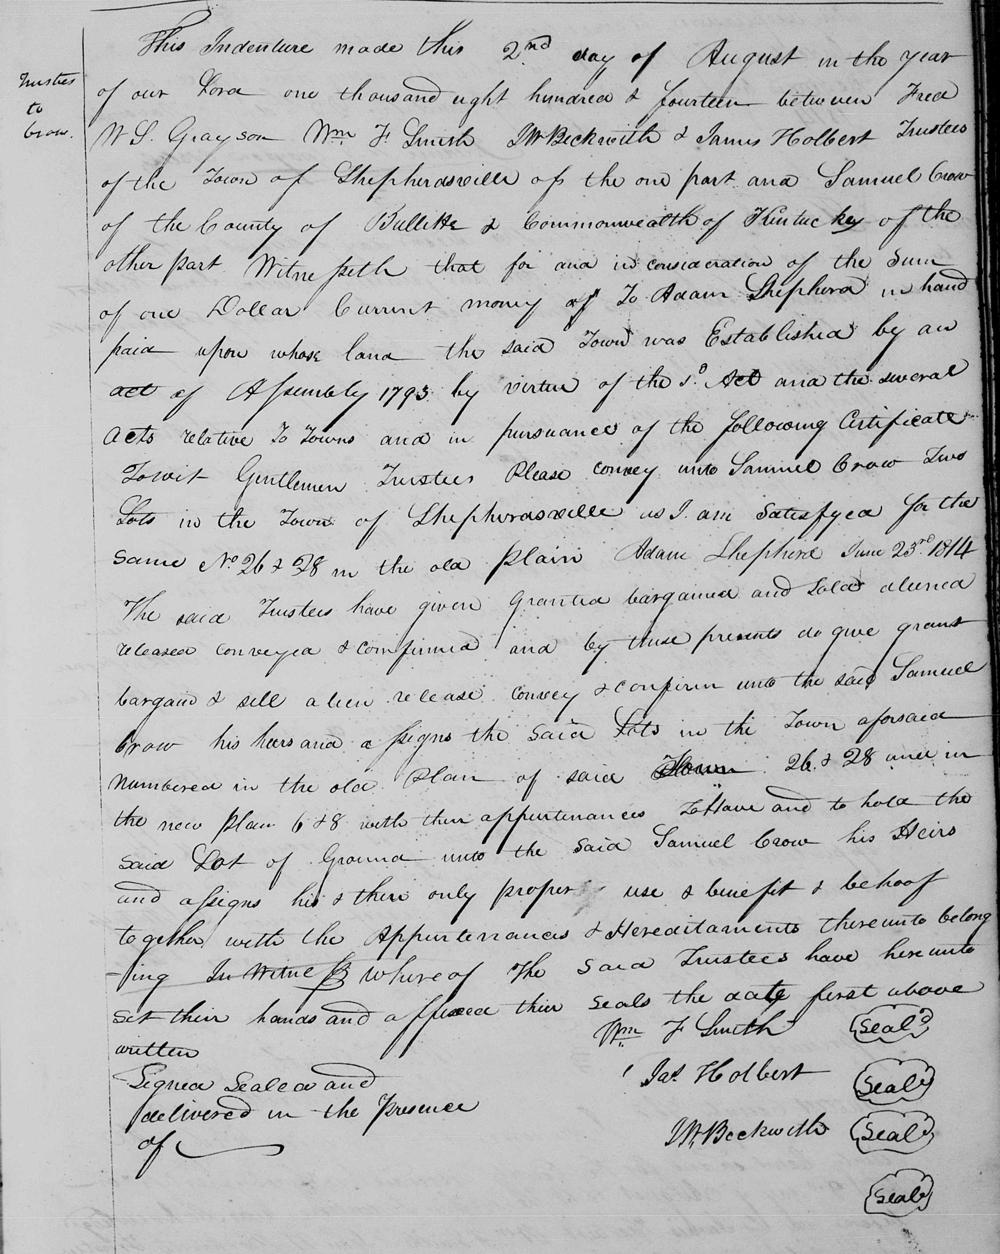 Trustees
to
Crow.
This Indenture made this 2nd day of August in the year
of our Lord one thousand eight hundred & fourteen between Fred
W S. Grayson Wm F. Smith JW Beckwith & James Holbert Trustees
of the Town of Shepherdsville of the one part and Samuel Crow
of the County of Bullitt & Commonwealth of Kentuckey of the
other part Witnesseth that for and in consideration of the Sum
of one Dollar Current money of To Adam Shepherd in hand
paid upon whose land the said Town was Established by an
act of Assembly 1793 by virtue of the sd. Act and the several
Acts relative To Towns and in pursuance of the following Certificate
Towit Gentlemen Trustees Please convey unto Samuel Crow Two
Lots in the Town of Shepherdsville as I am Satisfyed for the
same No. 26 & 28 in the old Plain Adam Shepherd June 23rd 1814
The said Trustees have given Granted bargained and Sold aliened
released conveyed & confirmed and by these presents do give grant
bargain & sell alien release convey & confirm unto the said Samuel
Crow his heirs and assigns the Said Lots in the Town aforsaid
numbered in the old Plan of said Town 26 & 28 and in
the new Plan 6 & 8 with their appurtenances To Have and to hold the
said Lot of Ground unto the Said Samuel Crow his Heirs
and assigns his & their only proper use & benefit & behoof
together with the Appurtenances & Hereditaments thereunto belong
-ing In Witness whereof The Said Trustees have hereunto
set their hands and affixed their seals the date first above
written
Wm F Smith Seal'd
Signed Sealed and
Jas. Holbert Seal'd
delivered in the Presence
JW. Beckwith Seal'd
of
Seal'd